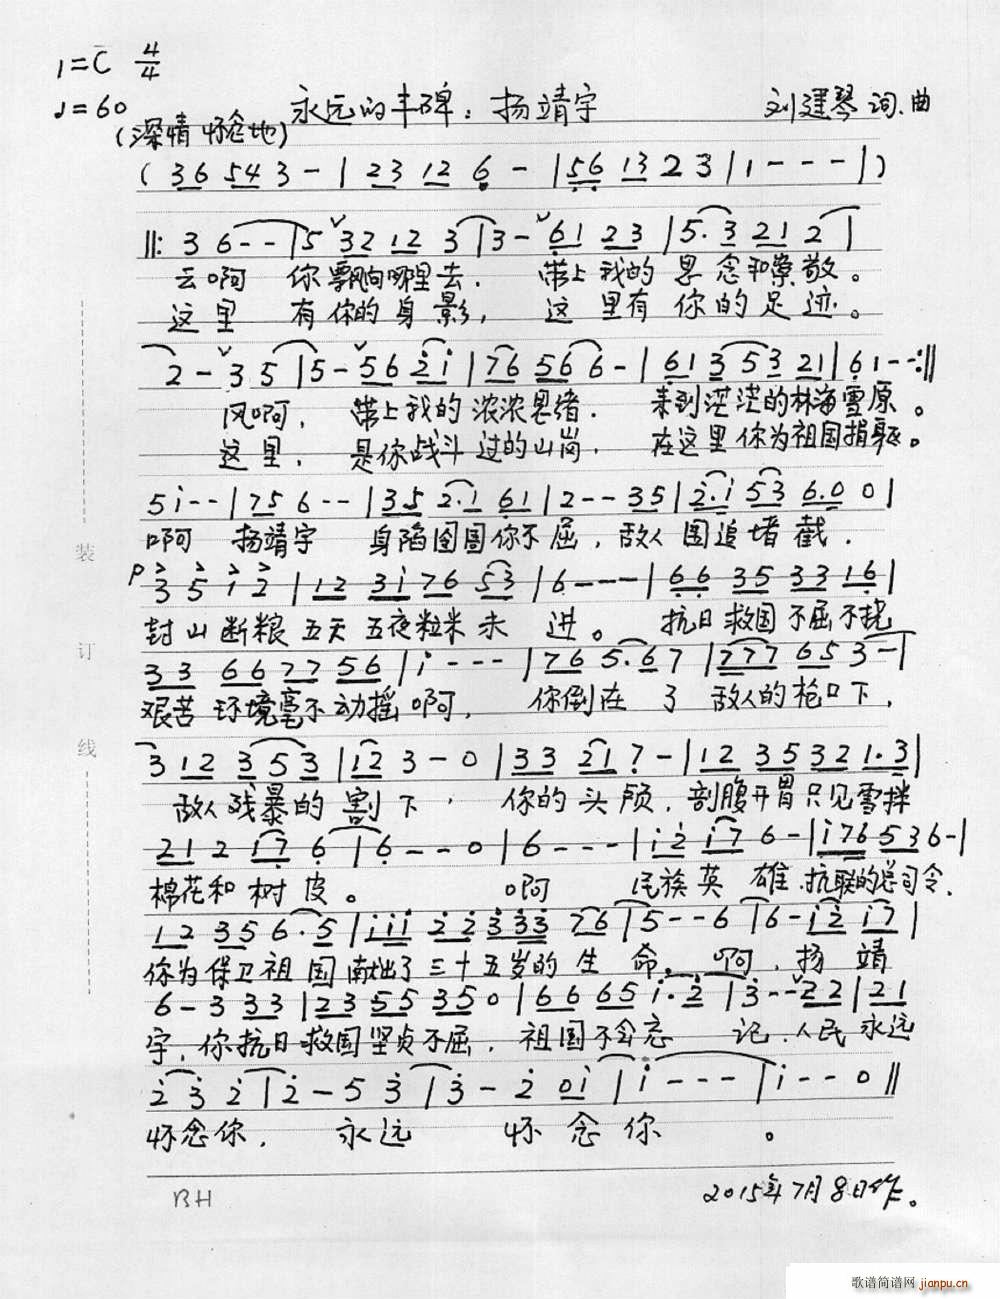 1=C 4/4
♩=60 永远的丰碑：扬靖宇 刘运琴 词、曲
(深情 怀念地)
( 36 54 3 - | 23 12 6 - | 56 13 2 3 | 1 - - - | )
‖: 3 6 - - | 5 32 12 3 | 3 - 61 23 | 5. 3 21 2 |
云啊 你飘向哪里去. 带上我的 思念和崇敬。
这里 有你的身影, 这里有你的足迹。
2 - 3 5 | 5 - 56 2i | 76 56 6 - | 61 3 53 21 | 61 - - :‖
风啊, 带上我的浓浓思绪. 来到茫茫的林海雪原。
这里, 是你战斗过的山岗, 在这里你为祖国捐躯。
5 i - - | 75 6 - - | 35 2.1 61 | 2 - - 35 | 2.i 53 6.0 0 |
啊 扬靖宇 身陷囹圄你不屈, 敌人围追堵截.
p 3 5 i 2 | 12 3i 76 53 | 6 - - - | 66 35 33 16 |
封山断粮 五天五夜粒米未进。 抗日救国不屈不挠
33 66 77 56 | i - - - | 76 5.6 7 | 777 65 3 - |
艰苦环境毫不动摇啊, 你倒在了敌人的枪口下,
3 12 3 53 | 12 3 - 0 | 33 21 7 - | 12 35 32 1.3 |
敌人残暴的割下, 你的头颅, 剖腹开胃只见雪拌
21 2 i7 6 | 6 - - 0 | 6 - - - | i2 i7 6 - | i76 53 6 - |
棉花和树皮。 啊 民族英雄.抗联的总司令.
12 35 6. 5 | iii 22 333 76 | 5 - - 6 | 6 - i2 i7 |
你为保卫祖国献出了三十五岁的生命。啊, 扬靖
6 - 3 33 | 23 55 35 0 | 66 65 i. 2 | 3 - - 22 | 21
宇, 你抗日救国坚贞不屈. 祖国不会忘记.人民永远
2 3 2 | 2 - 5 3 | 3 - 2 0i | i - - - | i - - 0 ‖
怀念你, 永远 怀念你。
装
订
线
BH 2015年7月8日作。
歌谱简谱网 jianpu.cn